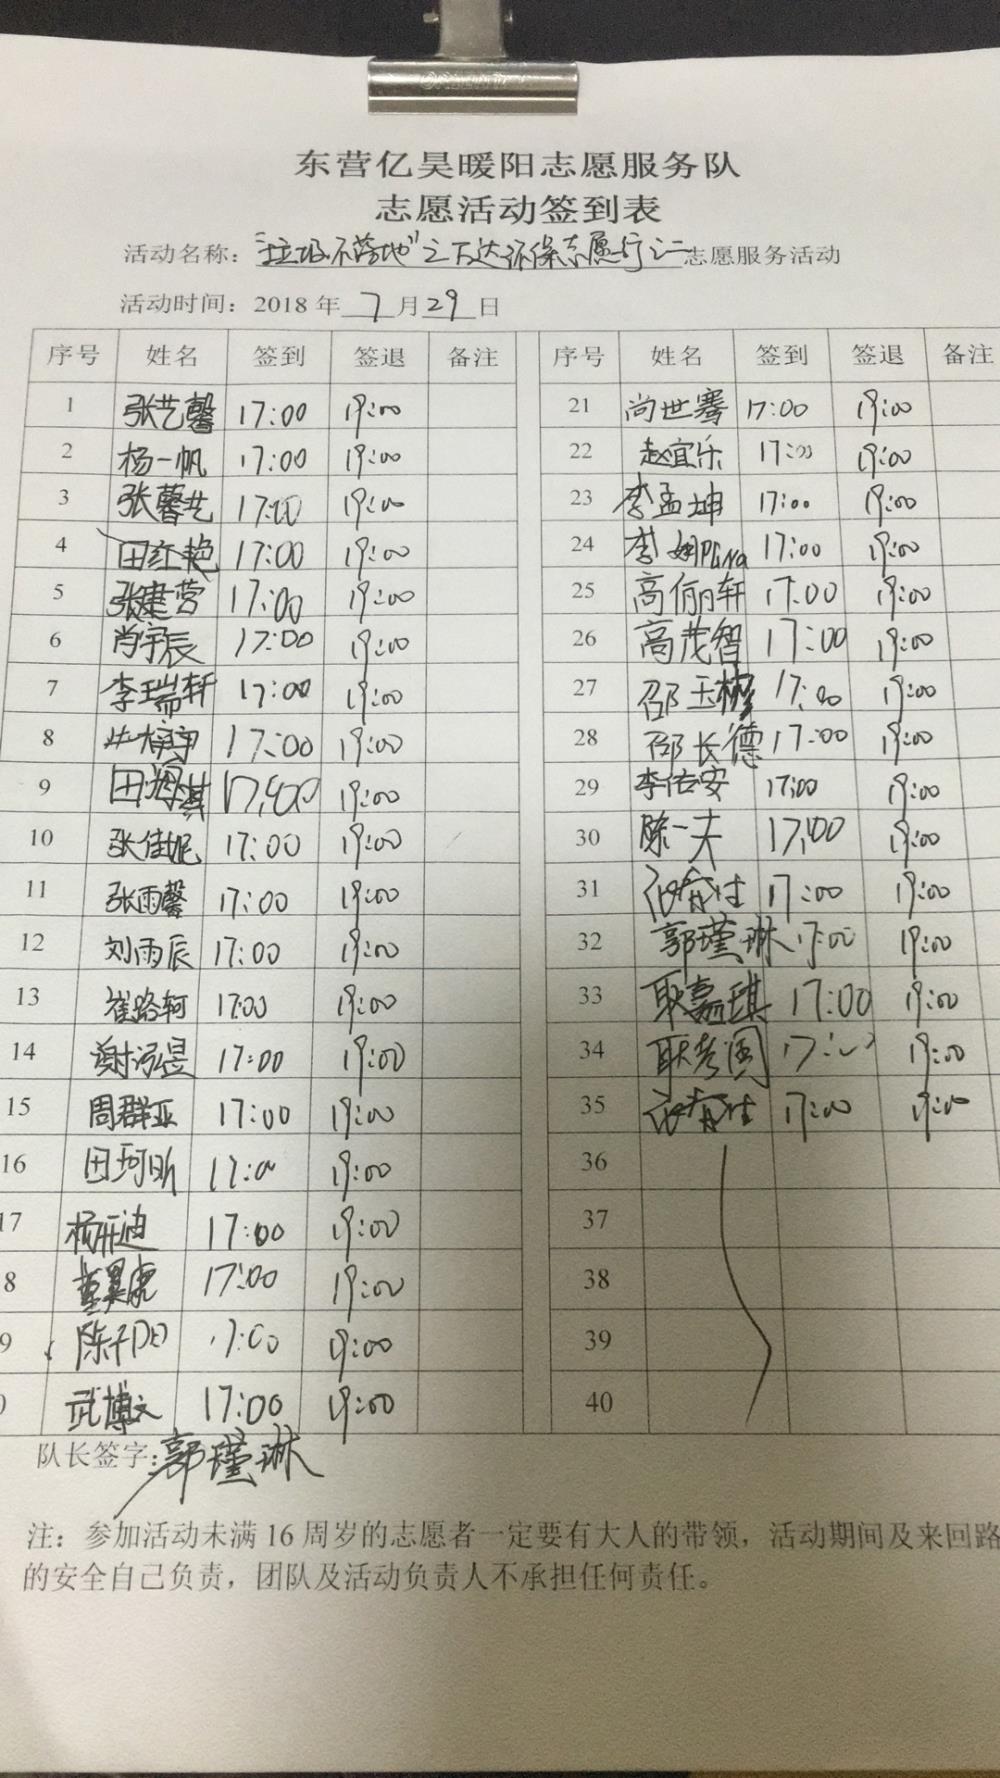 东营亿昊暖阳志愿服务队
志愿活动签到表
活动名称："垃圾不落地"之万达环保志愿行之二志愿服务活动
活动时间：2018年7月29日
序号 姓名 签到 签退 备注 序号 姓名 签到 签退 备注
1 张艺馨 17:00 19:00 21 尚世骞 17:00 19:00
2 杨一帆 17:00 19:00 22 赵宜乐 17:00 19:00
3 张馨艺 17:00 19:00 23 李孟坤 17:00 19:00
4 田红艳 17:00 19:00 24 李 17:00 19:00
5 张建营 17:00 19:00 25 高俪轩 17:00 19:00
6 肖宇辰 17:00 19:00 26 高茂智 17:00 19:00
7 李瑞轩 17:00 19:00 27 邵玉彬 17:00 19:00
8 17:00 19:00 28 邵长德 17:00 19:00
9 田姆其 17:00 19:00 29 李佑安 17:00 19:00
10 张佳妮 17:00 19:00 30 陈一夫 17:00 19:00
11 张雨馨 17:00 19:00 31 17:00 19:00
12 刘雨辰 17:00 19:00 32 郭瑾琳 17:00 19:00
13 崔路轲 17:00 19:00 33 耿嘉琪 17:00 19:00
14 谢泓昱 17:00 19:00 34 耿 17:00 19:00
15 周群亚 17:00 19:00 35 17:00 19:00
16 田珂昕 17:00 19:00 36
17 杨 迪 17:00 19:00 37
8 董昊虎 17:00 19:00 38
9 陈子阳 17:00 19:00 39
武博文 17:00 19:00 40
队长签字：郭瑾琳
注：参加活动未满16周岁的志愿者一定要有大人的带领，活动期间及来回路
的安全自己负责，团队及活动负责人不承担任何责任。